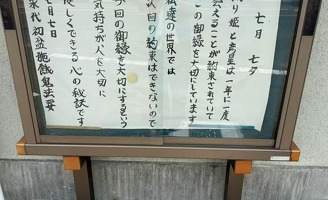 七月 七夕
り姫と彦星は一年に一度
会えることが約束されていて
この御縁を大切にしています
私達の世界では
次回の約束はできないので
今回の御縁を大切にするという
気持ちが人を大切に
優しくできる心の秘訣です
七月七日
永代初盆施餓鬼法要